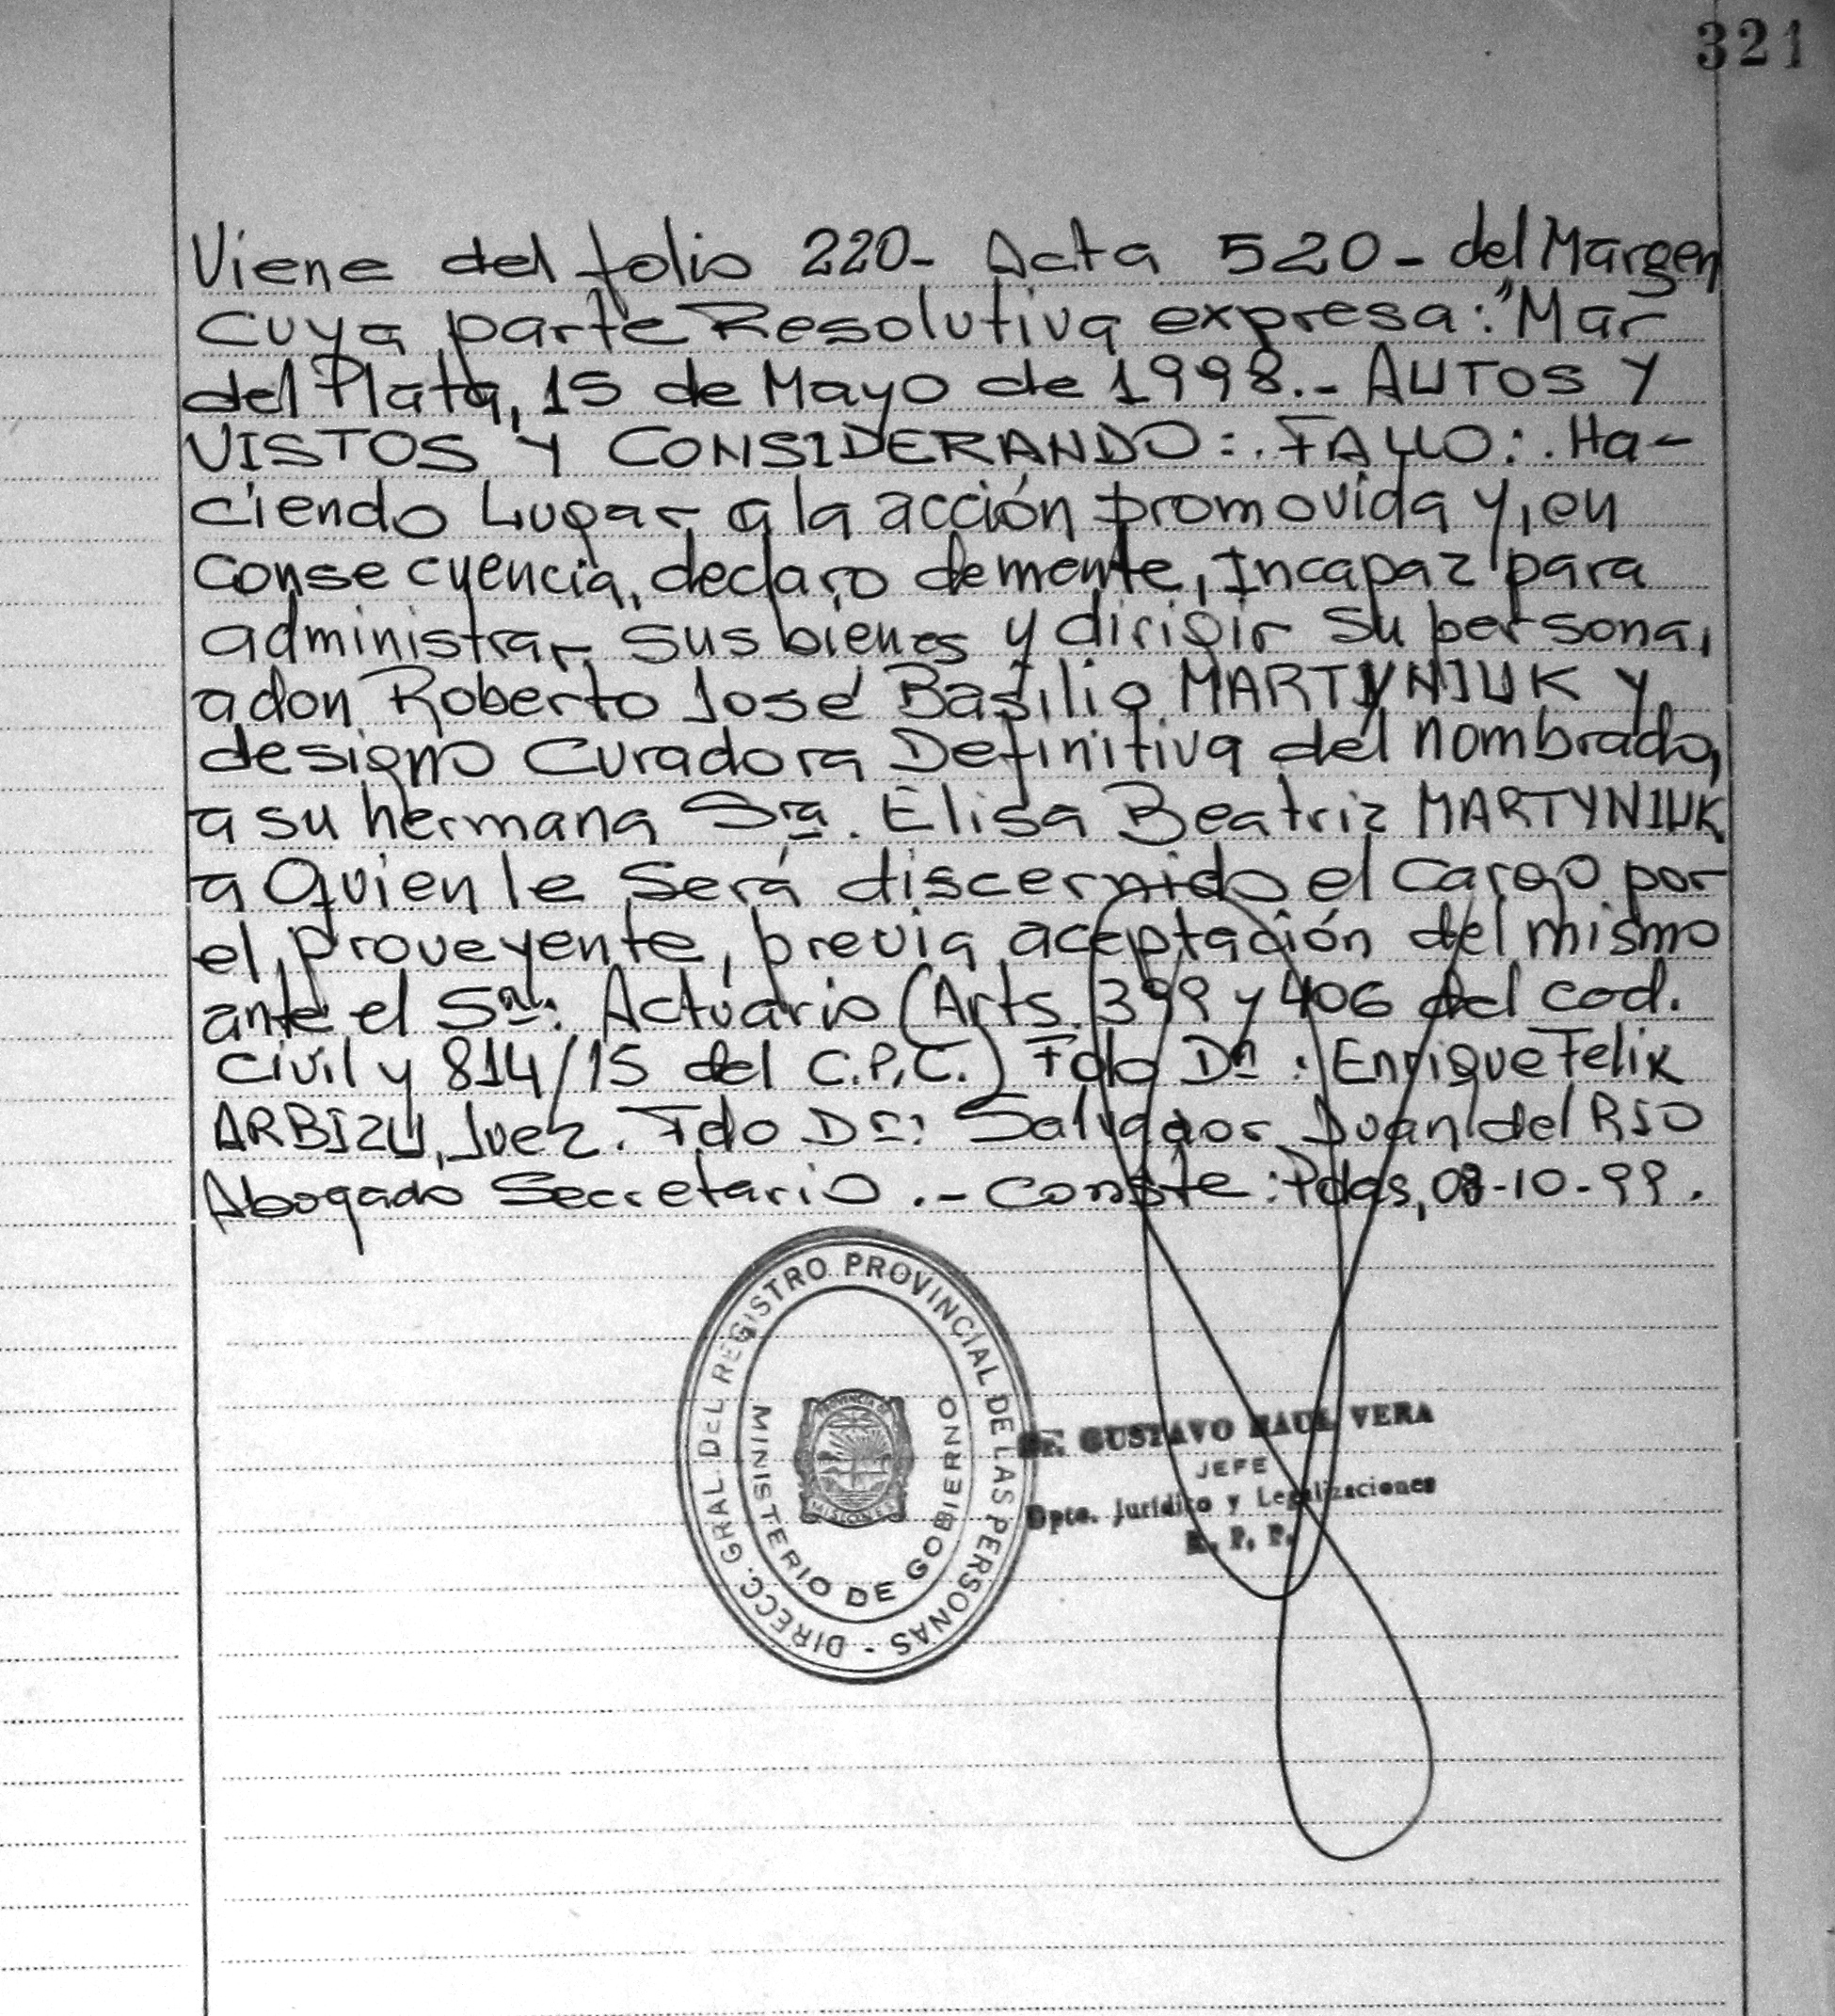 321
Viene del folio 220- Acta 520- del Margen
cuya parte Resolutiva expresa: "Mar
del Plata, 15 de Mayo de 1998.- AUTOS Y
VISTOS Y CONSIDERANDO:. FALLO:. Ha-
ciendo Lugar a la acción promovida y, en
consecuencia, declaro demente, Incapaz para
administrar sus bienes y dirigir su persona,
a don Roberto José Basilio MARTYNIUK y
designo Curadora Definitiva del nombrado,
a su hermana Sra. Elisa Beatriz MARTYNIUK
a Quien le Será discernido el Cargo por
el proveyente, previa aceptación del mismo
ante el Sr.: Actuario (Arts. 399 y 406 del cod.
Civil y 814/15 del C.P.C.) Fdo Dr: Enrique Felix
ARBIZU, Juez. Fdo Dr: Salvador Juan del RIO
Abogado Secretario.- Conste: Pdas, 08-10-99.
DIRECC. GRAL DEL REGISTRO PROVINCIAL DE LAS PERSONAS -
MINISTERIO DE GOBIERNO
PROVINCIA DE
MISIONES
Dr. GUSTAVO RAUL VERA
JEFE
Dpto. Jurídico y Legalizaciones
R. P. P.